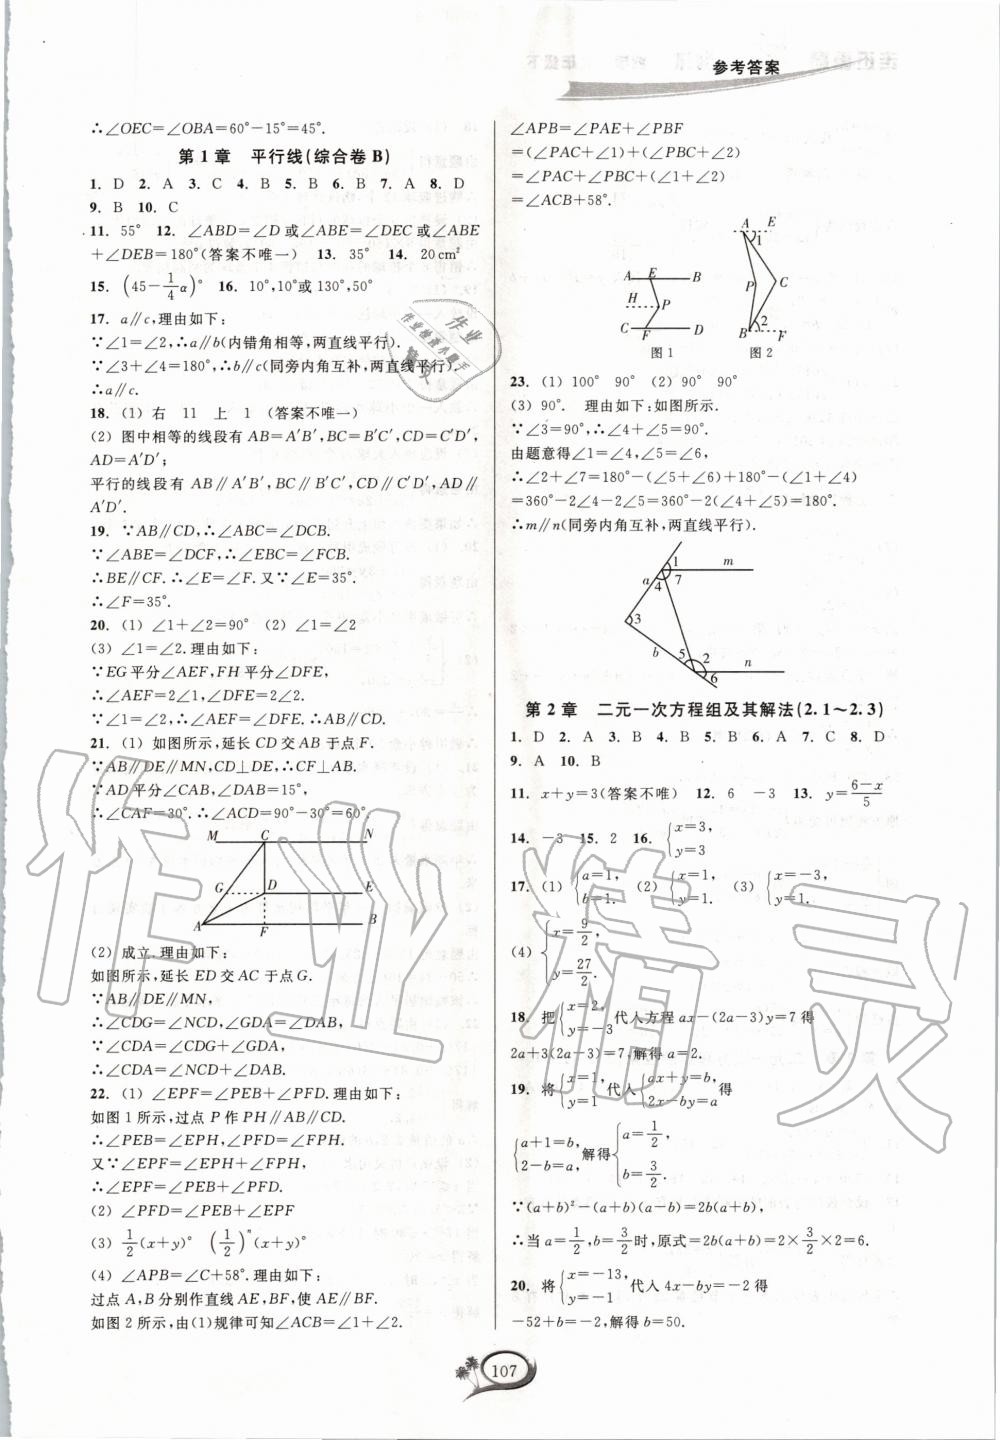 参考答案
∴∠OEC=∠OBA=60°-15°=45°.
第1章 平行线(综合卷B)
1. D 2. A 3. C 4. B 5. B 6. B 7. A 8. D
9. B 10. C
11. 55° 12. ∠ABD=∠D或∠ABE=∠DEC或∠ABE
+∠DEB=180°(答案不唯一) 13. 35° 14. 20cm²
15. (45-1/4α)° 16. 10°,10°或130°,50°
17. a∥c,理由如下:
∵∠1=∠2,∴a∥b(内错角相等,两直线平行).
∵∠3+∠4=180°,∴b∥c(同旁内角互补,两直线平行).
∴a∥c.
18. (1) 右 11 上 1 (答案不唯一)
(2) 图中相等的线段有AB=A′B′,BC=B′C′,CD=C′D′,
AD=A′D′;
平行的线段有AB∥A′B′,BC∥B′C′,CD∥C′D′,AD∥
A′D′.
19. ∵AB∥CD,∴∠ABC=∠DCB.
∵∠ABE=∠DCF,∴∠EBC=∠FCB.
∴BE∥CF.∴∠E=∠F.又∵∠E=35°.
∴∠F=35°.
20. (1) ∠1+∠2=90° (2) ∠1=∠2
(3) ∠1=∠2.理由如下:
∵EG平分∠AEF,FH平分∠DFE,
∴∠AEF=2∠1,∠DFE=2∠2.
∵∠1=∠2,∴∠AEF=∠DFE.∴AB∥CD.
21. (1) 如图所示,延长CD交AB于点F.
∵AB∥DE∥MN,CD⊥DE,∴CF⊥AB.
∵AD平分∠CAB,∠DAB=15°,
∴∠CAF=30°.∴∠ACD=90°-30°=60°.
M C N
G D E
A F B
(2) 成立.理由如下:
如图所示,延长ED交AC于点G.
∵AB∥DE∥MN,
∴∠CDG=∠NCD,∠GDA=∠DAB,
∵∠CDA=∠CDG+∠GDA,
∴∠CDA=∠NCD+∠DAB.
22. (1) ∠EPF=∠PEB+∠PFD.理由如下:
如图1所示,过点P作PH∥AB∥CD.
∴∠PEB=∠EPH,∠PFD=∠FPH.
又∵∠EPF=∠EPH+∠FPH,
∴∠EPF=∠PEB+∠PFD.
(2) ∠PFD=∠PEB+∠EPF
(3) 1/2(x+y)° (1/2)ⁿ(x+y)°
(4) ∠APB=∠C+58°.理由如下:
过点A,B分别作直线AE,BF,使AE∥BF.
如图2所示,由(1)规律可知∠ACB=∠1+∠2.
∠APB=∠PAE+∠PBF
=(∠PAC+∠1)+(∠PBC+∠2)
=∠PAC+∠PBC+(∠1+∠2)
=∠ACB+58°.
A E B
H P
C F D
图1
A E
1
P C
B 2 F
图2
23. (1) 100° 90° (2) 90° 90°
(3) 90°. 理由如下:如图所示.
∵∠3=90°,∴∠4+∠5=90°.
由题意得∠1=∠4,∠5=∠6,
∴∠2+∠7=180°-(∠5+∠6)+180°-(∠1+∠4)
=360°-2∠4-2∠5=360°-2(∠4+∠5)=180°.
∴m∥n(同旁内角互补,两直线平行).
1 m
a 4 7
3
b 5 2 n
6
第2章 二元一次方程组及其解法(2.1~2.3)
1. D 2. A 3. B 4. B 5. B 6. A 7. C 8. D
9. A 10. B
11. x+y=3(答案不唯) 12. 6 -3 13. y=(6-x)/5
14. -3 15. 2 16. {x=3, y=3
17. (1) {a=1, b=1. (2) {x=1, y=1. (3) {x=-3, y=1.
(4) {x=9/2, y=27/2.
18. 把{x=2, y=-3代入方程ax-(2a-3)y=7得
2a+3(2a-3)=7,解得a=2.
19. 将{x=1, y=1代入{ax+y=b, 2x-by=a得
{a+1=b, 2-b=a,解得{a=1/2, b=3/2.
∵(a+b)²-(a+b)(a-b)=2b(a+b),
∴当a=1/2,b=3/2时,原式=2b(a+b)=2×3/2×2=6.
20. 将{x=-13, y=-1代入4x-by=-2得
-52+b=-2,解得b=50.
107
作业精灵